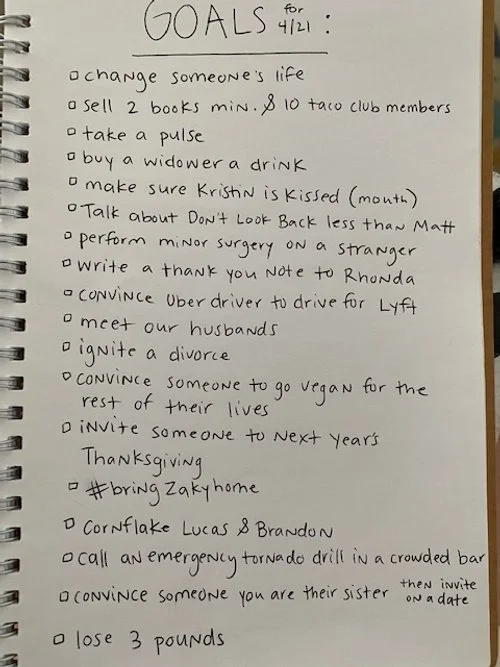 GOALS for 4/21 :
□ change someone's life
□ sell 2 books min. & 10 taco club members
□ take a pulse
□ buy a widower a drink
□ make sure Kristin is kissed (mouth)
□ Talk about Don't Look Back less than Matt
□ perform minor surgery on a stranger
□ write a thank you note to Rhonda
□ convince Uber driver to drive for Lyft
□ meet our husbands
□ ignite a divorce
□ convince someone to go vegan for the
rest of their lives
□ invite someone to next year's
Thanksgiving
□ #bringZakyhome
□ Cornflake Lucas & Brandon
□ call an emergency tornado drill in a crowded bar
□ convince someone you are their sister then invite on a date
□ lose 3 pounds